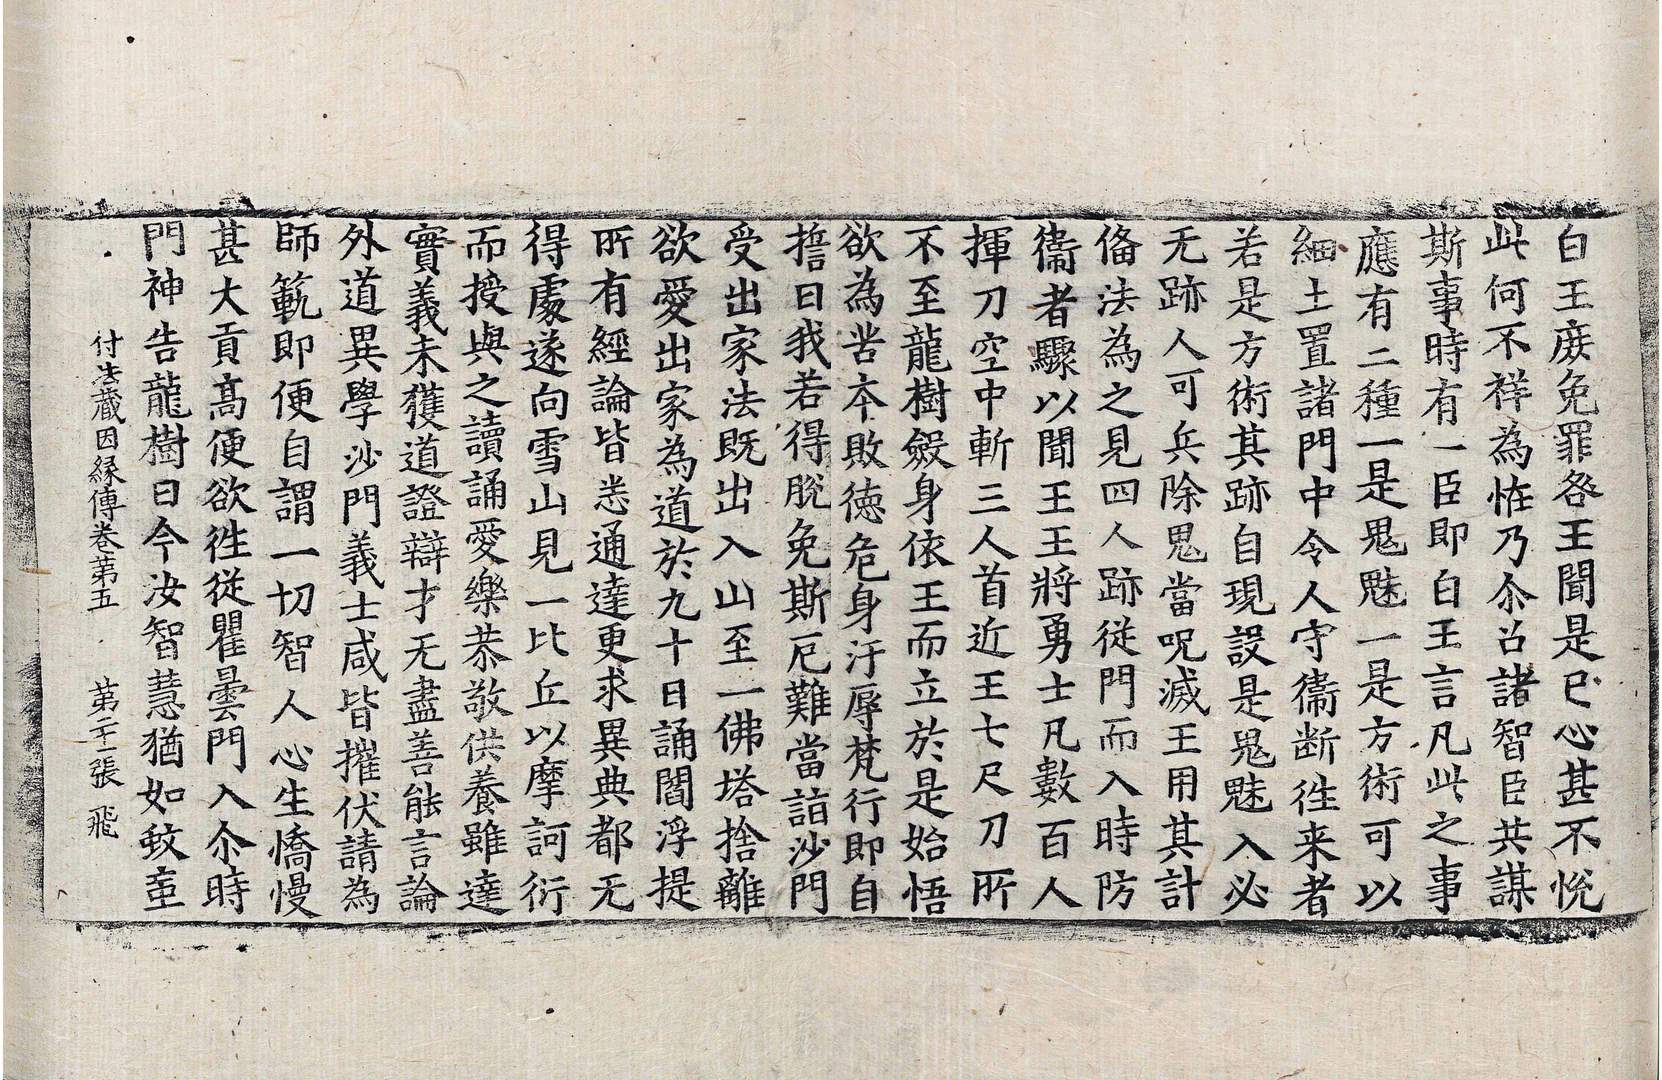 白王庻免罪咎王聞是已心甚不悅
此何不祥為恠乃尒召諸智臣共謀
斯事時有一臣即白王言凡此之事
應有二種一是鬼魅一是方術可以
細土置諸門中令人守衞断徃来者
若是方術其跡自現設是鬼魅入必
无跡人可兵除鬼當呪滅王用其計
俻法為之見四人跡從門而入時防
衞者驟以聞王王將勇士凡數百人
揮刀空中斬三人首近王七尺刀所
不至龍樹斂身依王而立於是始悟
欲為苦本敗徳危身汙辱梵行即自
誓曰我若得脫免斯厄難當詣沙門
受出家法既出入山至一佛塔捨離
欲愛出家為道於九十日誦閻浮提
所有經論皆悉通達更求異典都无
得處遂向雪山見一比丘以摩訶衍
而授與之讀誦愛樂恭敬供養雖達
實義未獲道證辯才无盡善能言論
外道異學沙門義士咸皆摧伏請為
師範即便自謂一切智人心生憍慢
甚大貢髙便欲徃從瞿曇門入尒時
門神告龍樹曰今汝智慧猶如蚊䖟
付法藏因縁傳卷第五 第二十一張 飛